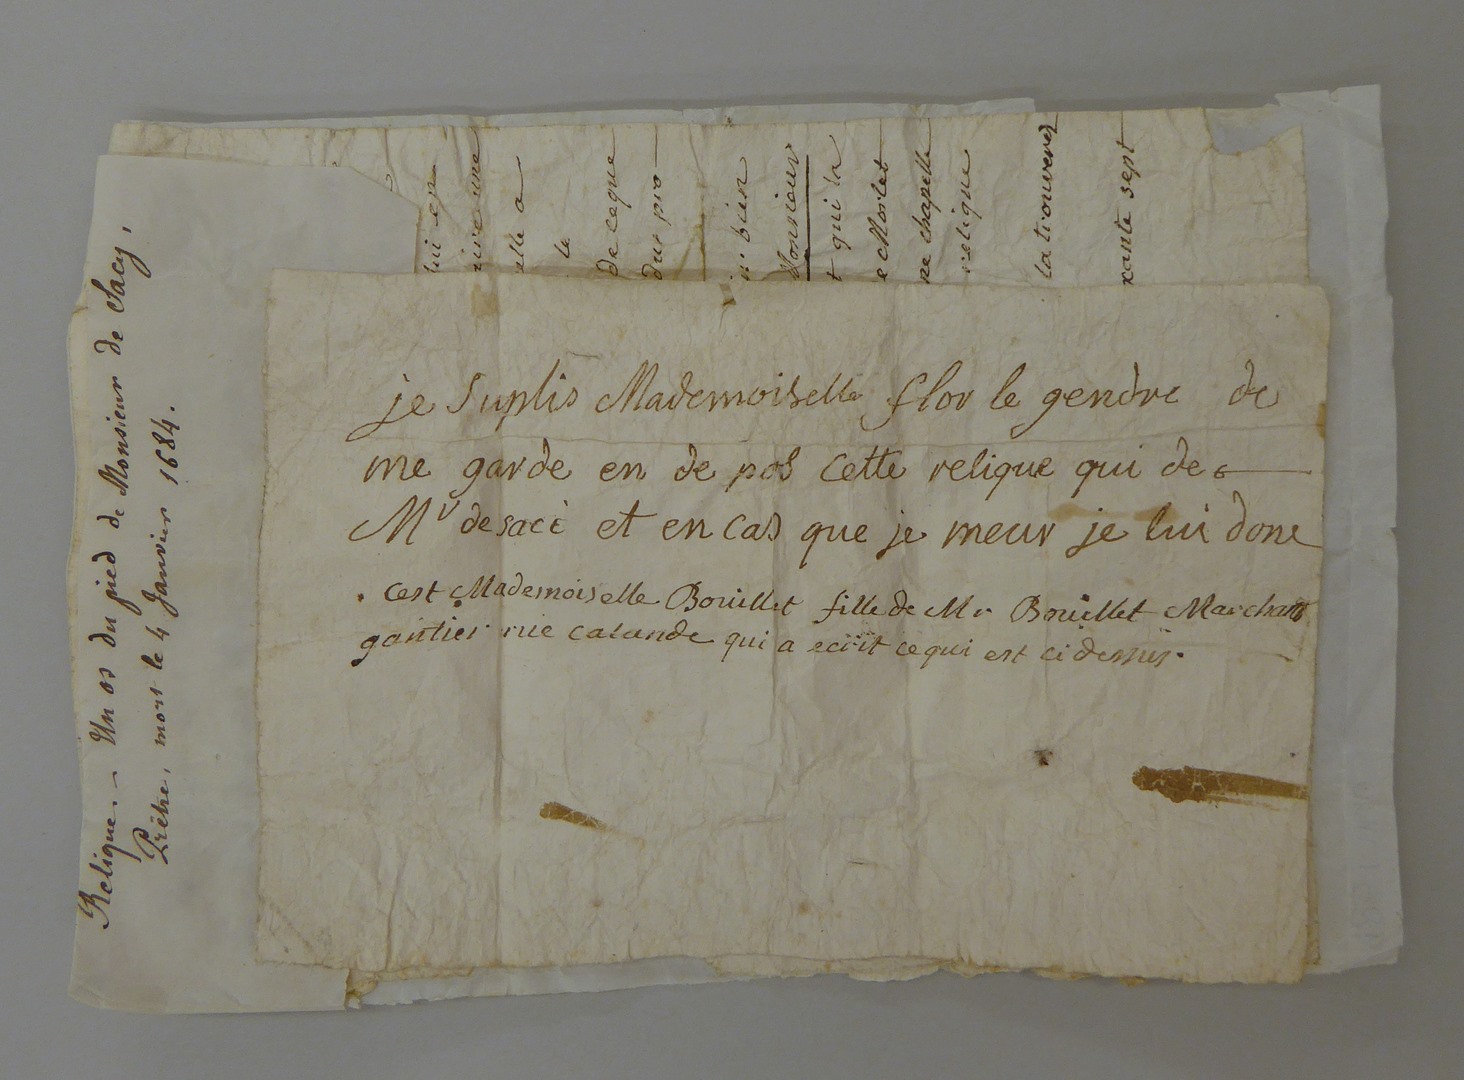 Relique. – Un os du pied de Monsieur de Sacy,
Prêtre, mort le 4 Janvier 1684.
lui en
une
elle a
le
de ce que
dur pro
n bien
Monsieur
t qui la
e Morlet
ne chapelle
relique
la trouverez
xante sept
je suplis Mademoiselle flor le gendre de
me garde en de pos cette relique qui de
Mr de saci et en cas que je meur je lui done
. cest Mademoiselle Bouillet fille de Mr Bouillet Marchant
gantier rue calande qui a ecrit ce qui est ci dessus.